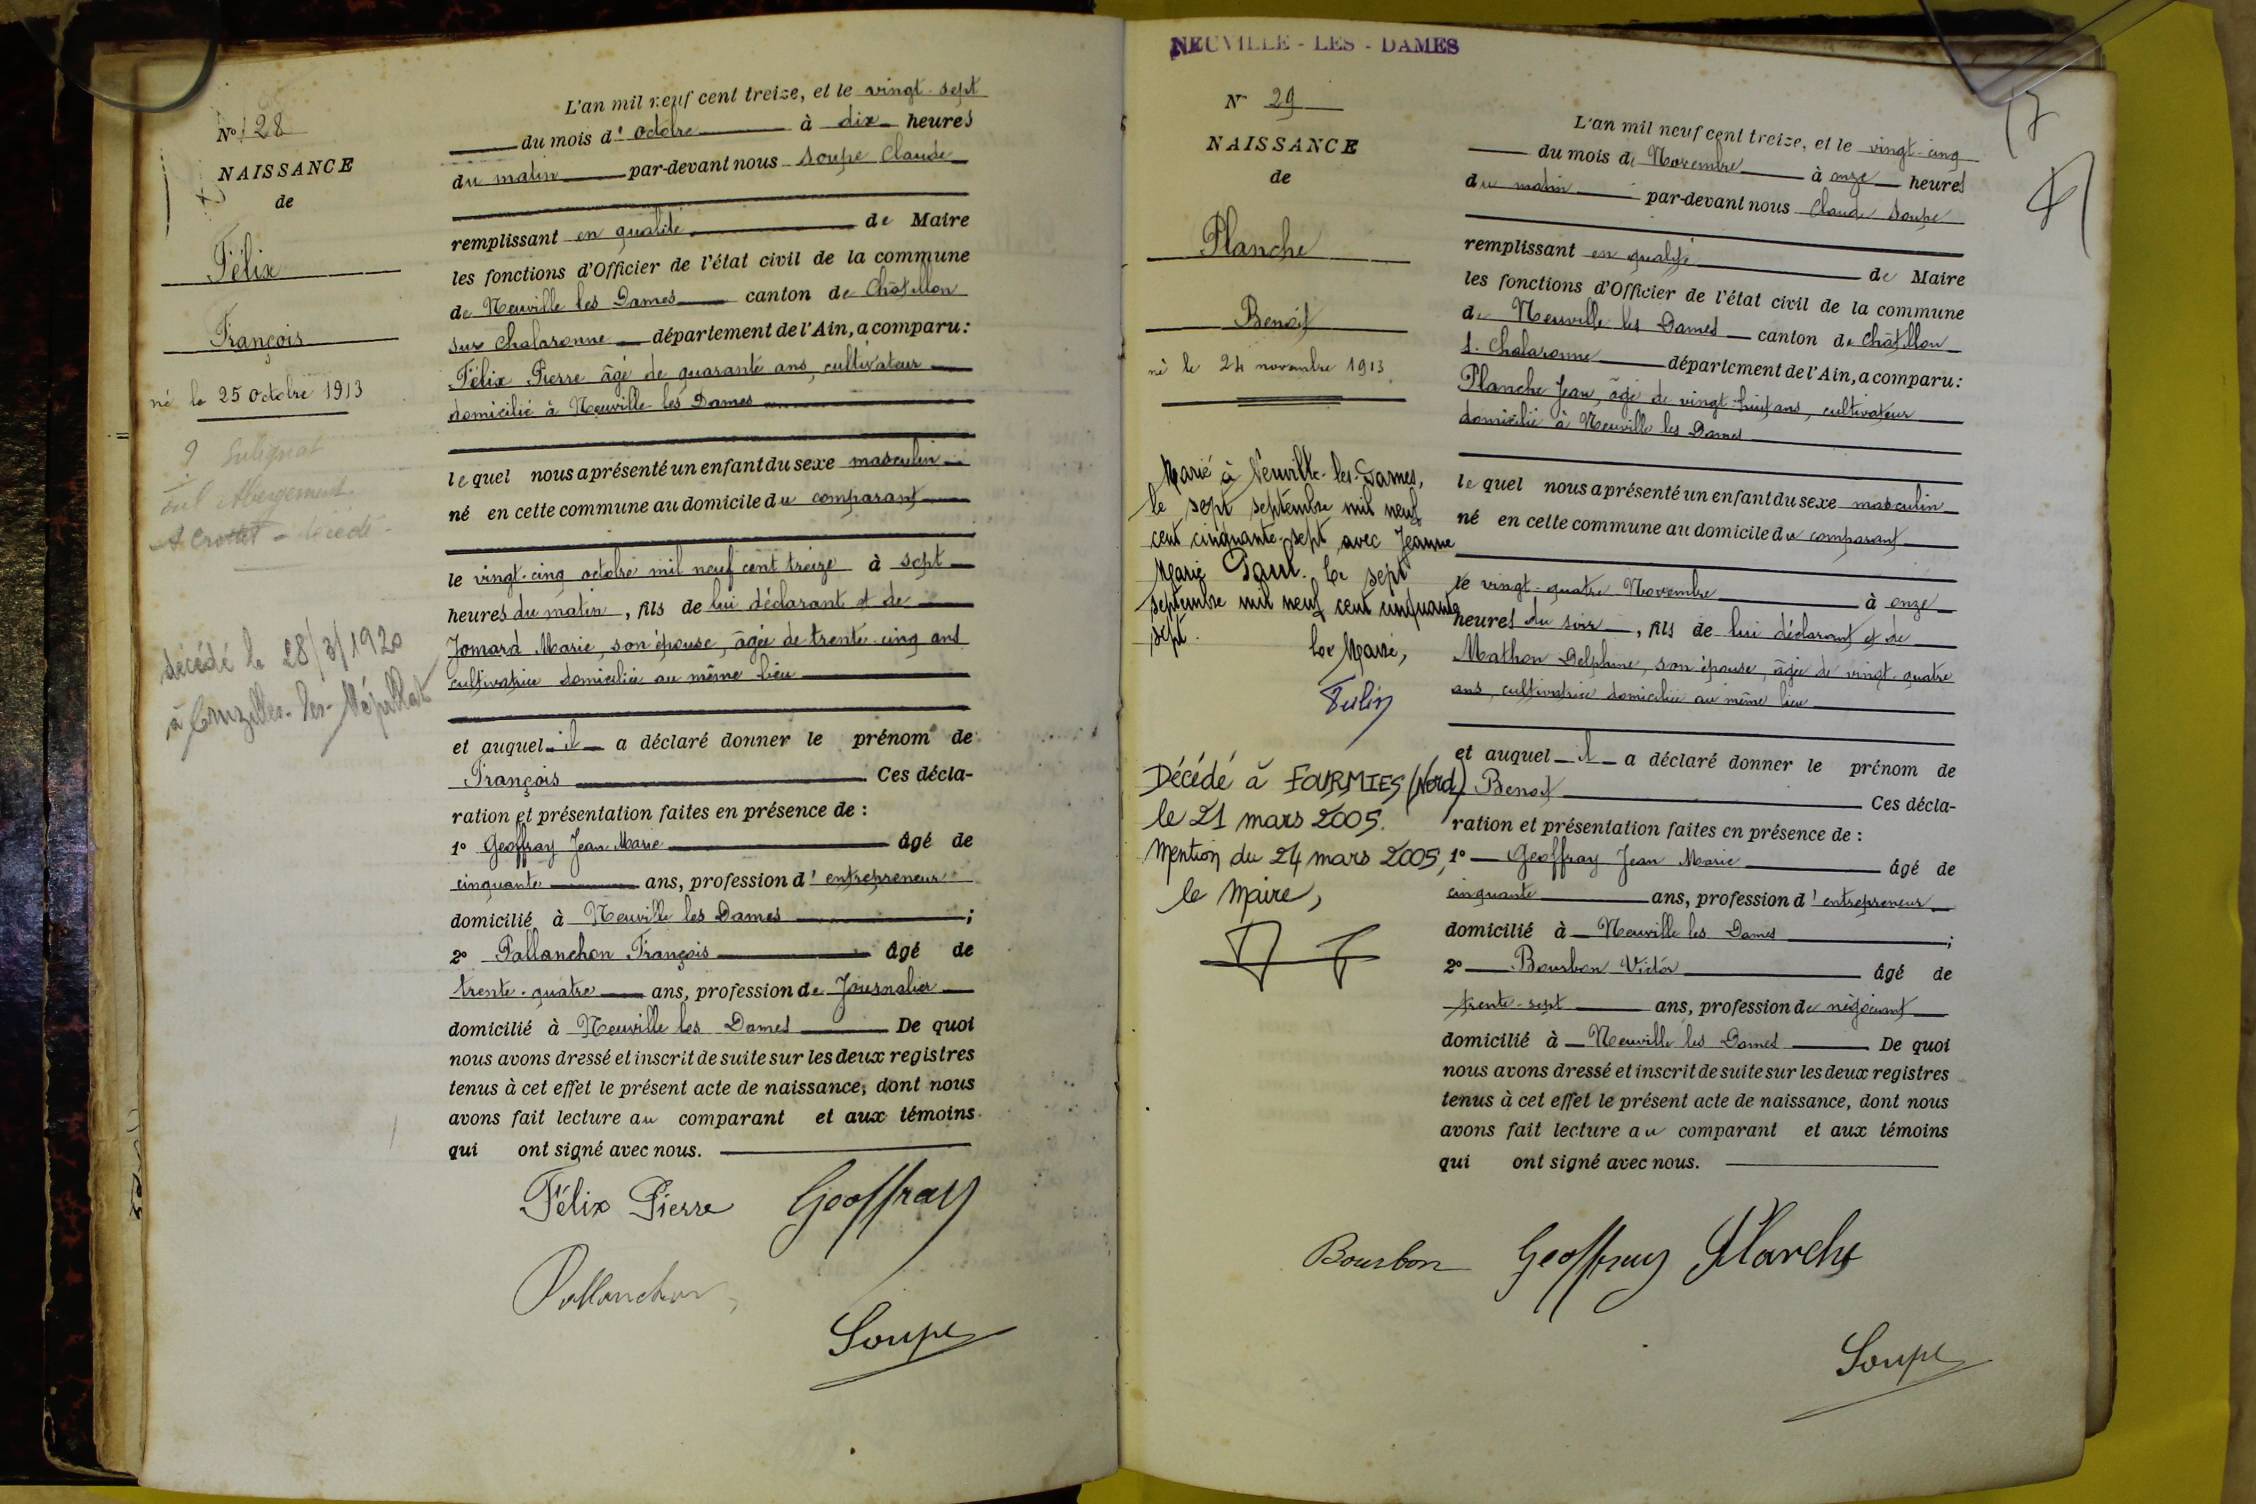 N° 28
NAISSANCE
de
Félix
François
né le 25 octobre 1913
décédé le 28/3/1920
à Cruzilles-les-Mépillat
L'an mil neuf cent treize, et le vingt sept
du mois d' octobre à dix heures
du matin par-devant nous Soupe Claude
remplissant en qualité de Maire
les fonctions d'Officier de l'état civil de la commune
de Neuville les Dames canton de Châtillon
sur Chalaronne département de l'Ain, a comparu :
Félix Pierre âgé de quarante ans, cultivateur
domicilié à Neuville les Dames
le quel nous a présenté un enfant du sexe masculin
né en cette commune au domicile du comparant
le vingt-cinq octobre mil neuf cent treize à sept
heures du matin, fils de lui déclarant et de
Jomard Marie, son épouse, âgée de trente cinq ans
cultivatrice domiciliée au même lieu
et auquel il a déclaré donner le prénom de
François Ces décla-
ration et présentation faites en présence de :
1° Geoffray Jean Marie âgé de
cinquante ans, profession d' entrepreneur
domicilié à Neuville les Dames ;
2° Pallanchon François âgé de
trente-quatre ans, profession de Journalier
domicilié à Neuville les Dames De quoi
nous avons dressé et inscrit de suite sur les deux registres
tenus à cet effet le présent acte de naissance, dont nous
avons fait lecture au comparant et aux témoins
qui ont signé avec nous.
Félix Pierre Geoffray
Pallanchon
Soupe
NEUVILLE - LES - DAMES
17
N° 29
NAISSANCE
de
Planche
Benoit
né le 24 novembre 1913
Marié à Neuville-les-Dames,
le sept septembre mil neuf
cent cinquante-sept avec Jeanne
Marie Paul. Le sept
septembre mil neuf cent cinquante
sept.
Le Maire,
Décédé à FOURMIES (Nord)
le 21 mars 2005.
Mention du 24 mars 2005,
le Maire,
L'an mil neuf cent treize, et le vingt-cinq
du mois de Novembre à onze heures
du matin par-devant nous Claude Soupe
remplissant en qualité de Maire
les fonctions d'Officier de l'état civil de la commune
de Neuville les Dames canton de Châtillon
s. Chalaronne département de l'Ain, a comparu :
Planche Jean, âgé de vingt-huit ans, cultivateur
domicilié à Neuville les Dames
le quel nous a présenté un enfant du sexe masculin
né en cette commune au domicile du comparant
le vingt-quatre Novembre à onze
heures du soir, fils de lui déclarant et de
Mathon Delphine, son épouse, âgée de vingt-quatre
ans, cultivatrice domiciliée au même lieu
et auquel il a déclaré donner le prénom de
Benoit Ces décla-
ration et présentation faites en présence de :
1° Geoffray Jean Marie âgé de
cinquante ans, profession d' entrepreneur
domicilié à Neuville les Dames ;
2° Bourbon Victor âgé de
trente-sept ans, profession de négociant
domicilié à Neuville les Dames De quoi
nous avons dressé et inscrit de suite sur les deux registres
tenus à cet effet le présent acte de naissance, dont nous
avons fait lecture au comparant et aux témoins
qui ont signé avec nous.
Bourbon Geoffray Planche
Soupe